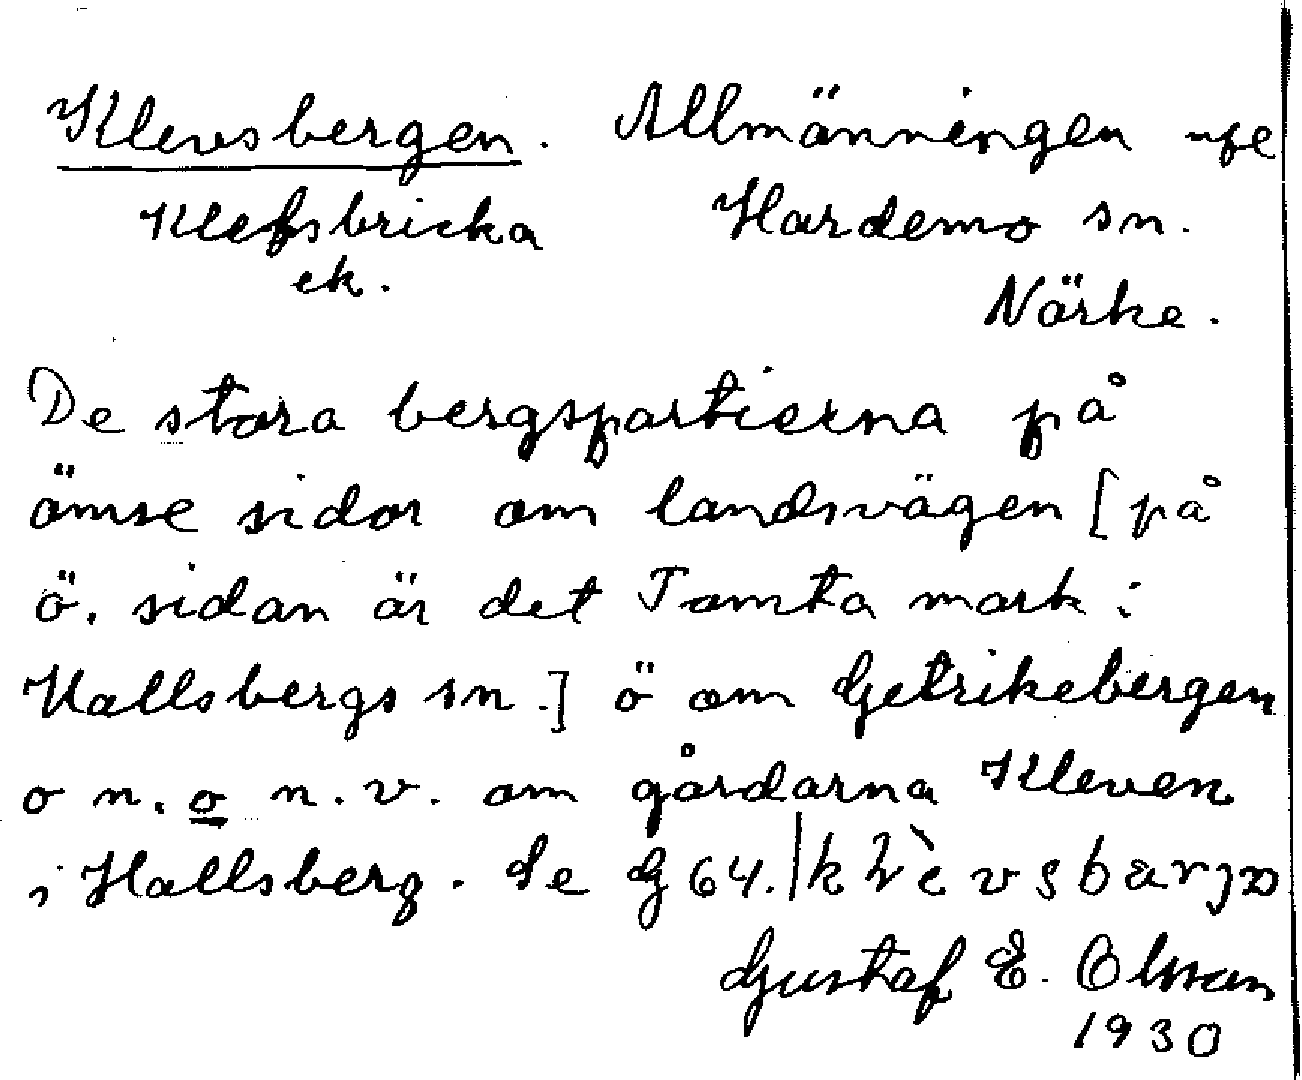 Klevsbergen. Allmänningen
Klefsbricka Hardemo sn.
ek. Närke.
De stora bergspartierna på
ömse sidor om landsvägen [på
ö. sidan är det Tomta mark i
Hallsbergs sn.] ö om Getrikebergen
o n. o n. v. om gårdarna Kleven
i Hallsberg. Se G 64.
Gustaf E. Olsson
1930